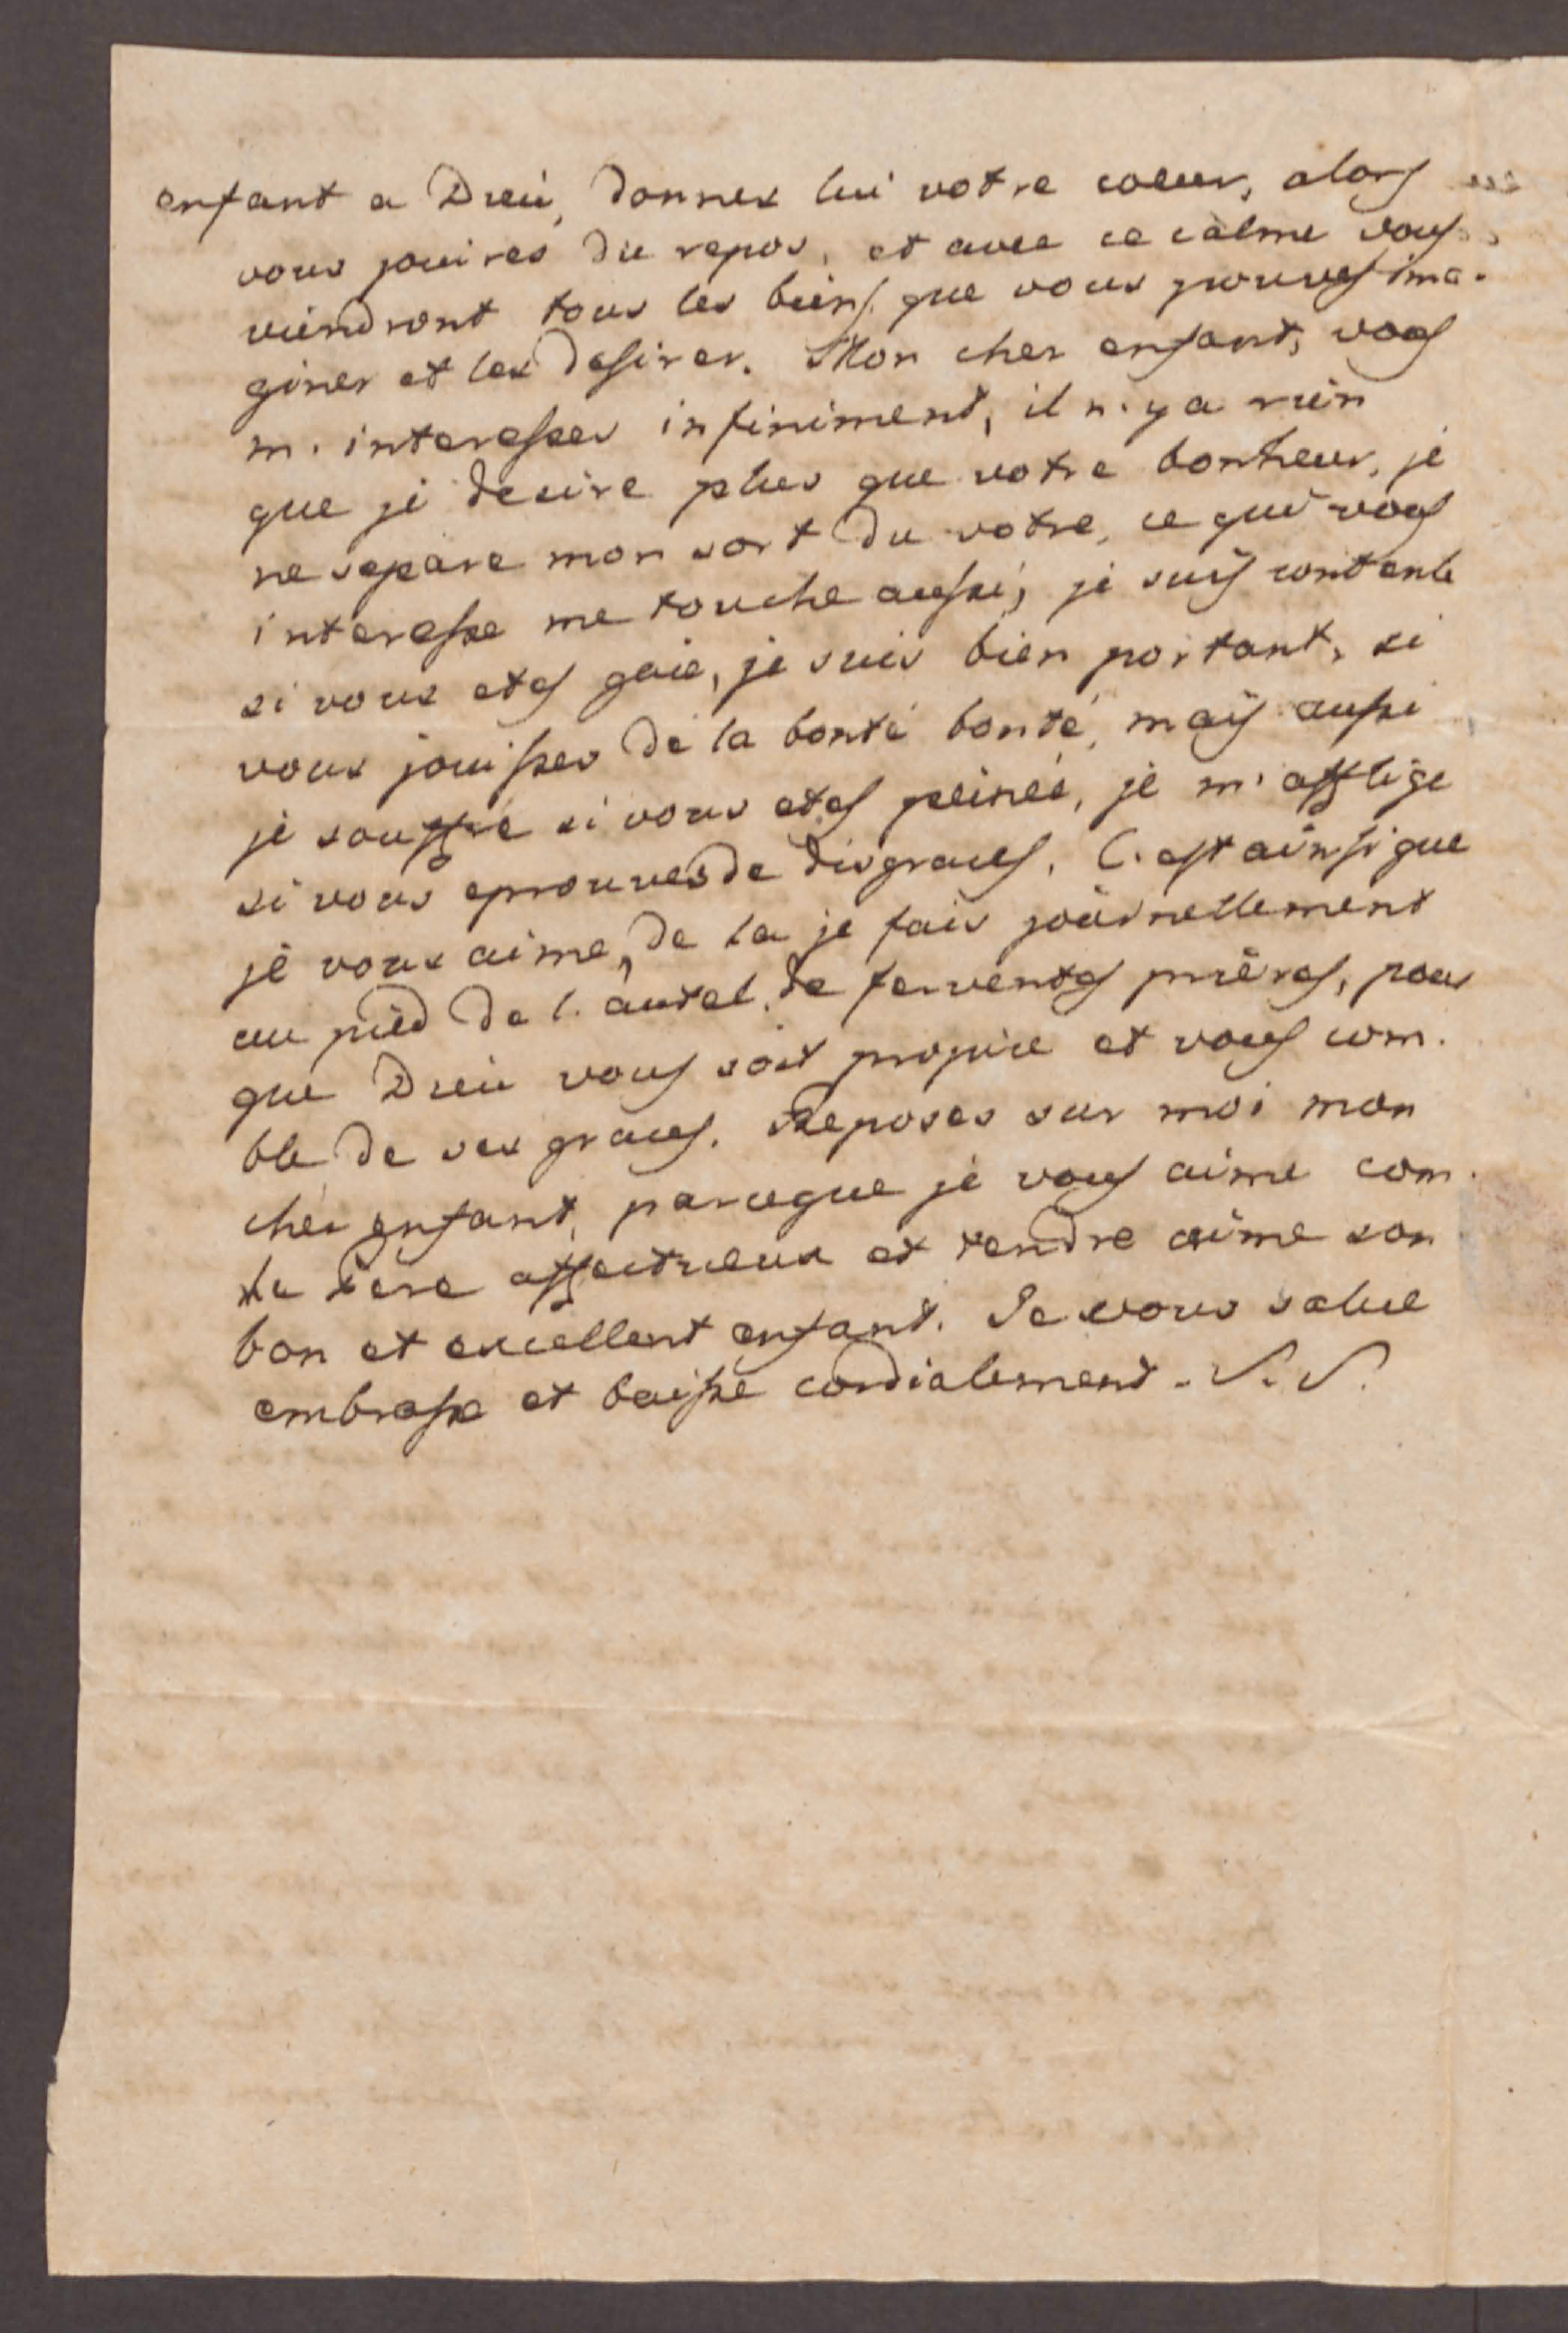 enfant a Dieu, donnes lui votre coeur, alors
vous jouires du repos, et avec ce calme vous
viendront tous les biens que vous pouves ima-
giner et les desirer. Mon cher enfant, vous
m'interesses infiniment, il n'y a rien
que je desire plus que votre bonheur, je
ne separe mon sort du votre, ce qui vous
interesse me touche aussi, je suis contente
si vous etes gaie, je suis bien portant, si
vous jouisses de la bonté bonté, mais aussi
je souffre si vous etes peinée, je m'afflige
si vous eprouves de disgraces. C'est ainsi que
je vous aime, de la je fais journellement
au pied de l'autel de ferventes prières, pour
que Dieu vous soit propice et vous com-
ble de ses graces. Reposes sur moi mon
cher enfant, parceque je vous aime com
le père affectueux et tendre aime son
bon et excellent enfant. Je vous salue
embrasse et baisse cordialement. S. S.